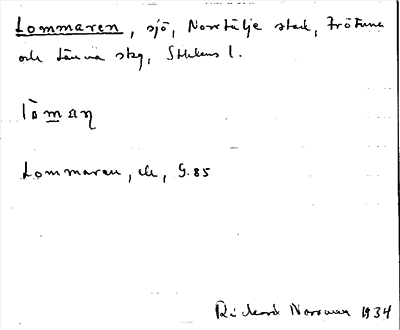 Lommaren, sjö, Norrtälje stad, Frötuna
och Länna skg, Sthlms l.
lòmaŋ
Lommaren, , G. 85
Rickard Norrman 1934